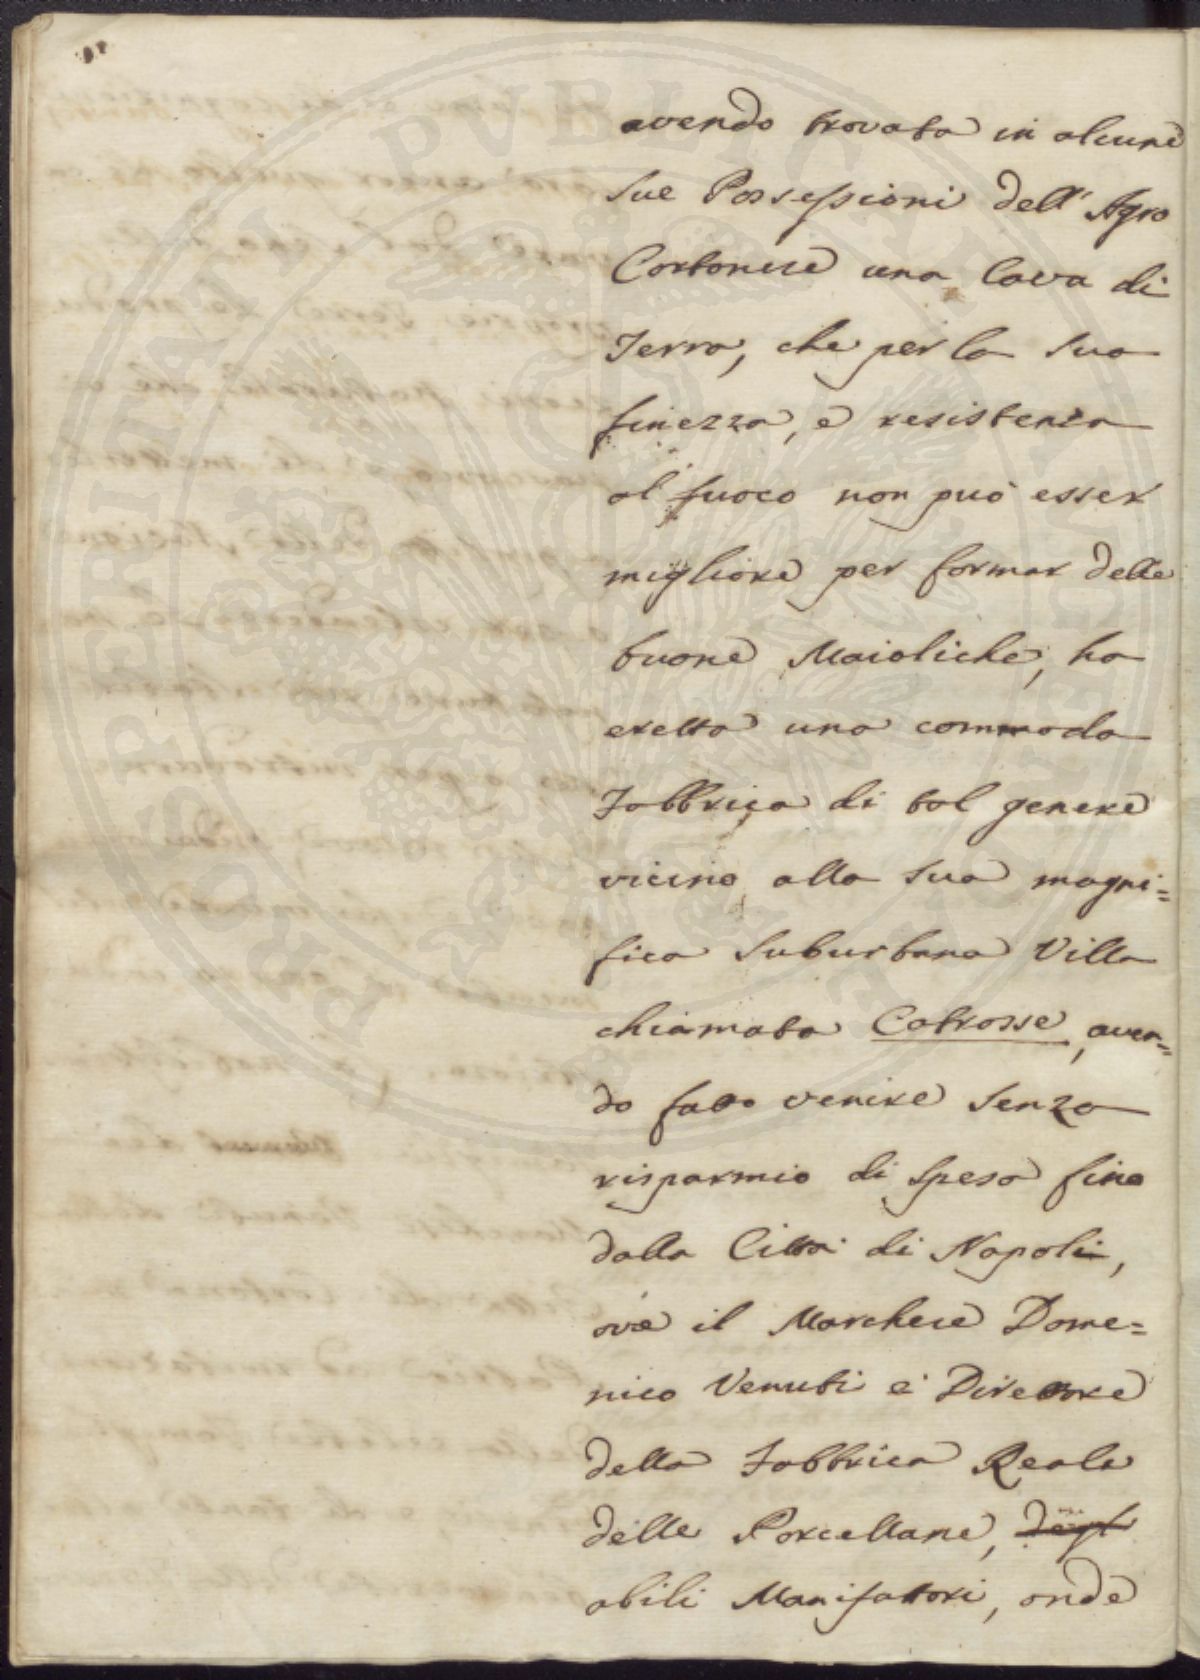 avendo trovata in alcune
sue Possessioni dell' Agro
Cortonese una Cava di
Terra, che per la sua
finezza, e resistenza
al fuoco non può esser
migliore per formar delle
buone Maioliche, ha
eretta una commoda
Fabbrica di tal genere
vicino alla sua magni=
fica Suburbana Villa
chiamata Catrosse, aven=
do fatto venire senza
risparmio di spesa fino
dalla Città di Napoli,
ove il Marchese Dome=
nico Venuti è Direttore
della Fabbrica Reale
delle Porcellane, degl
abili Manifattori, onde
PROSPERITATI PVBLICAE AVGENDAE